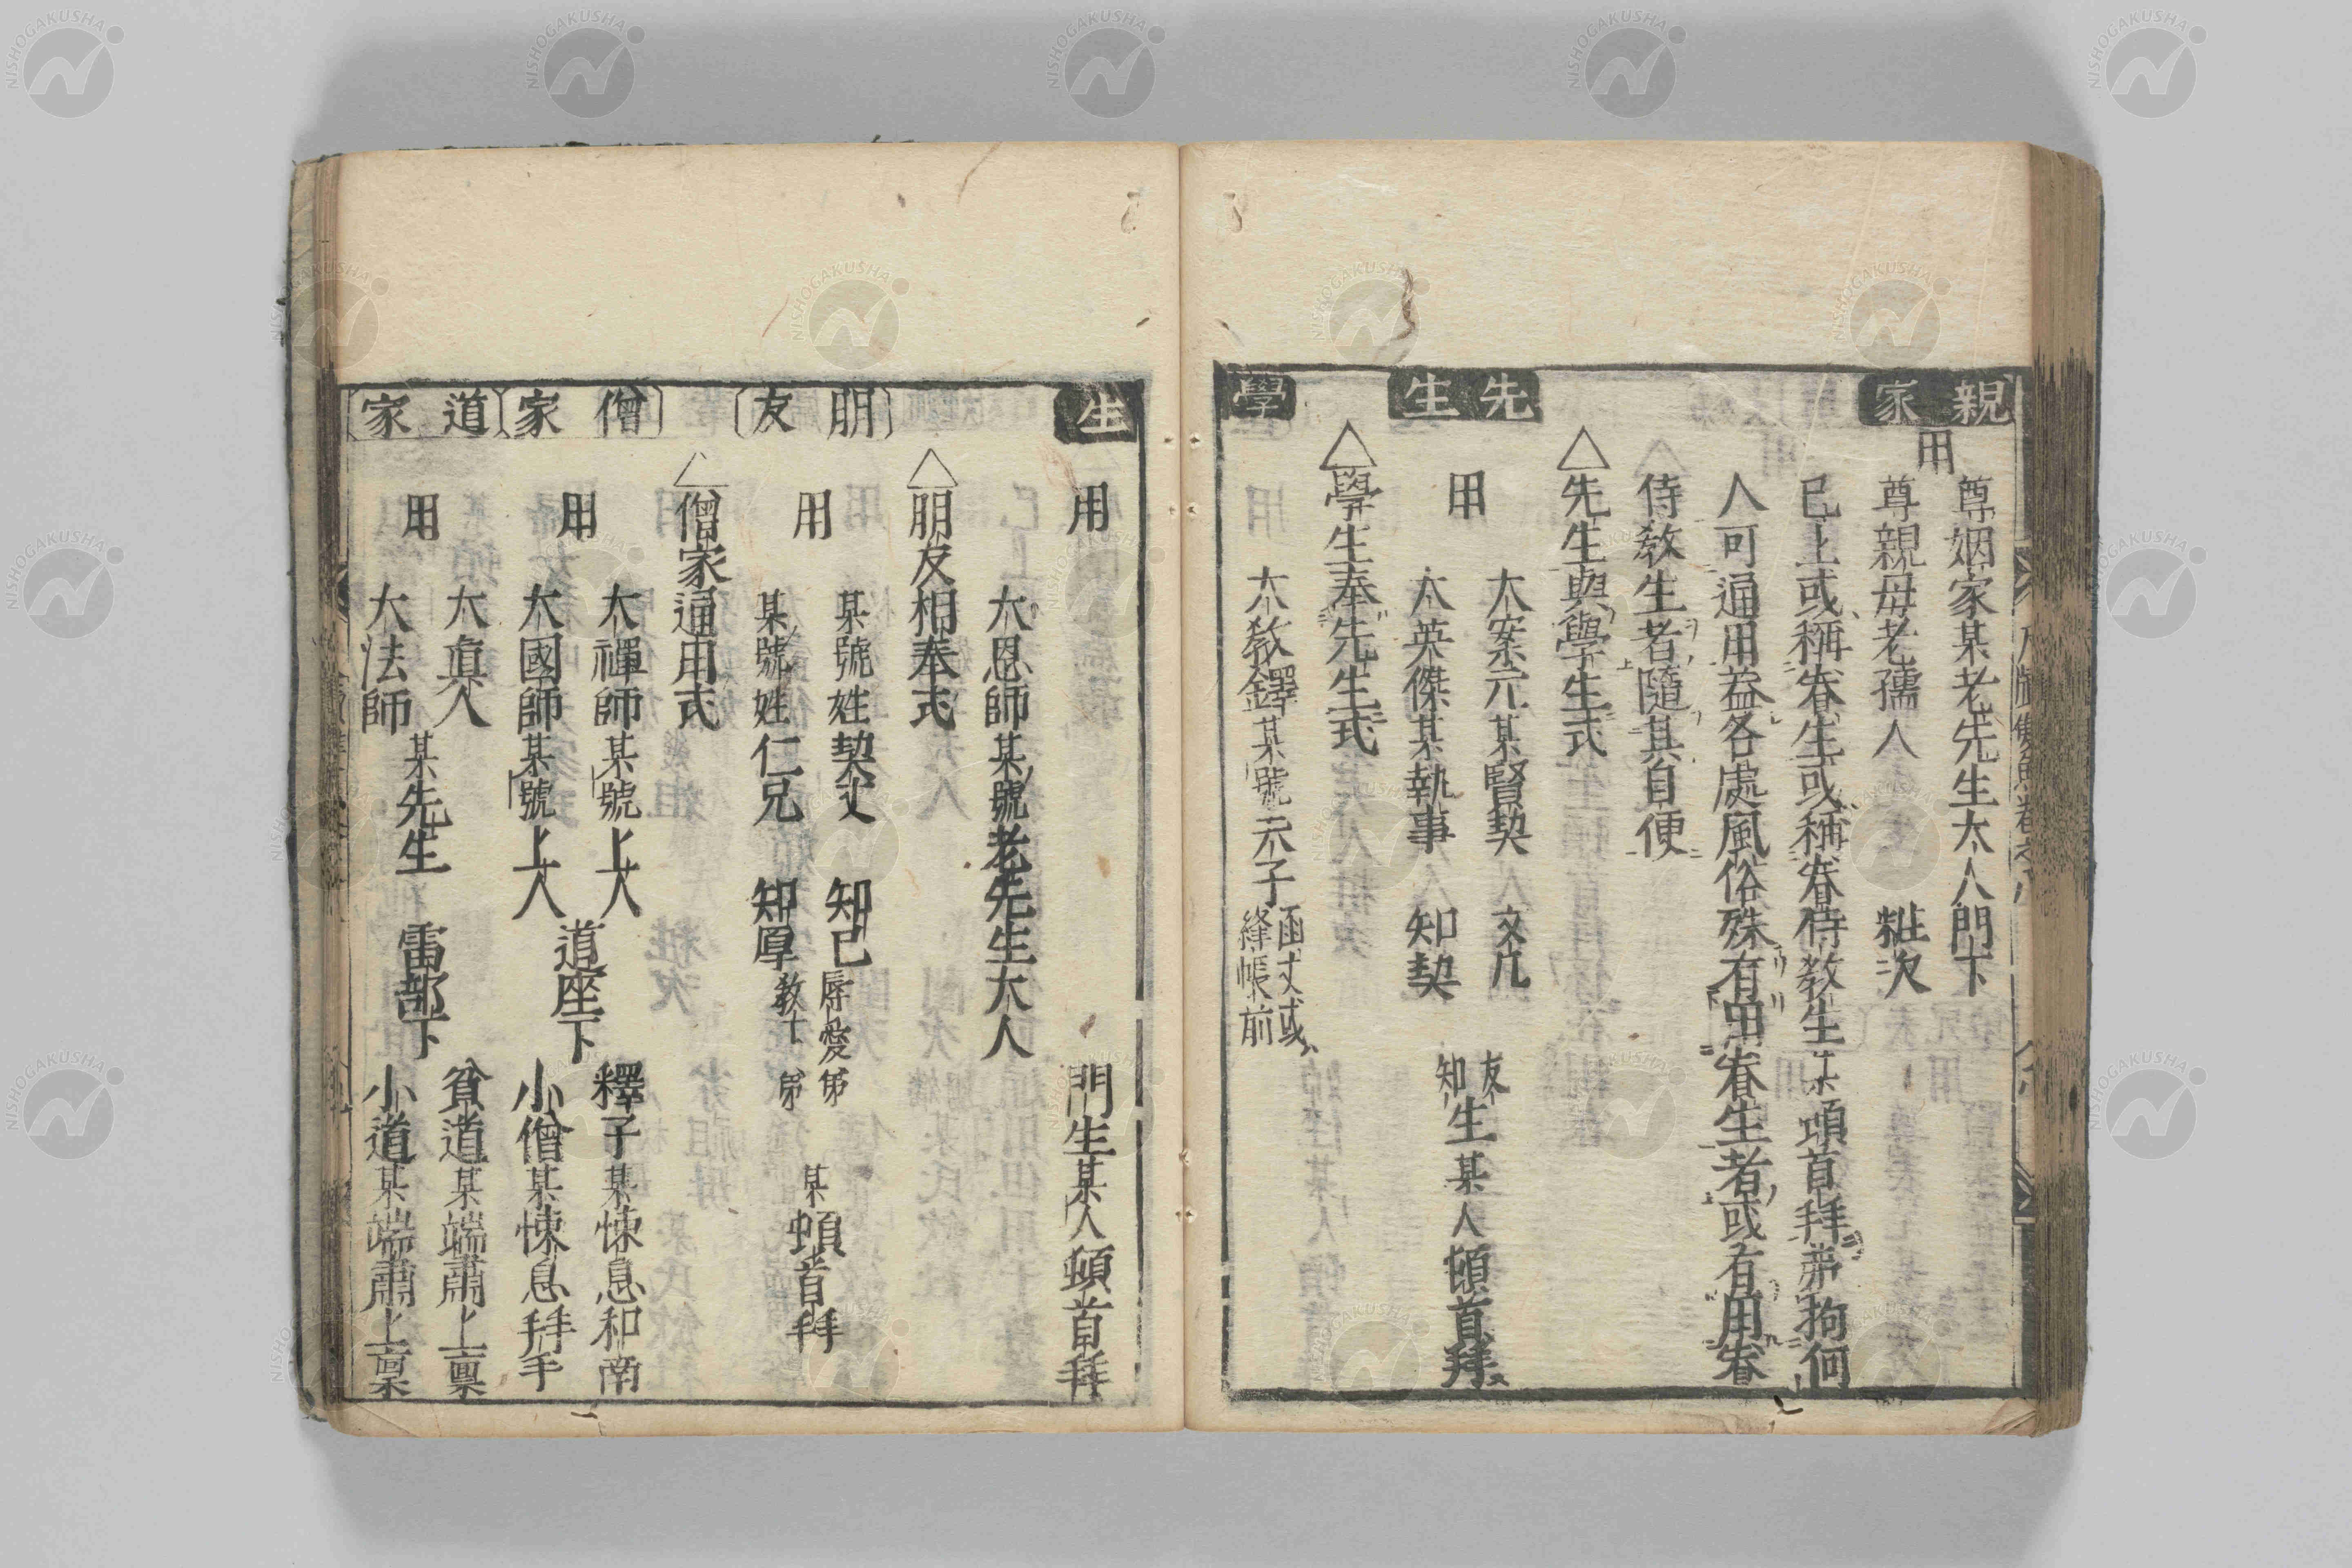 親家
用
尊姻家某老先生大人門下
尊親母老孺人 粧次
已上或稱眷生或稱眷侍教生某頓首拜弗拘何
人可通用益各處風俗殊有用眷生者或有用眷
侍教生者隨其自便
先生
△先生與學生式
用
大案元某賢契 文几
大英傑某執事 知契
友知生某人頓首拜
學
△學生奉先生式
大教鐸某號夫子函丈或絳帳前
生
用
大恩師某號老先生大人
門生某人頓首拜
朋友
△朋友相奉式
用
某號姓契丈 知己辱愛弟
某號姓仁兄 知厚教士弟
某頓首拜
僧家
△僧家通用式
用
大禪師某號上人
大國師某號上人
道座下
釋子某悚息和南
小僧某悚息拜手
道家
用
大真人
大法師
某先生 雷部下
貧道某端肅上稟
小道某端肅上稟